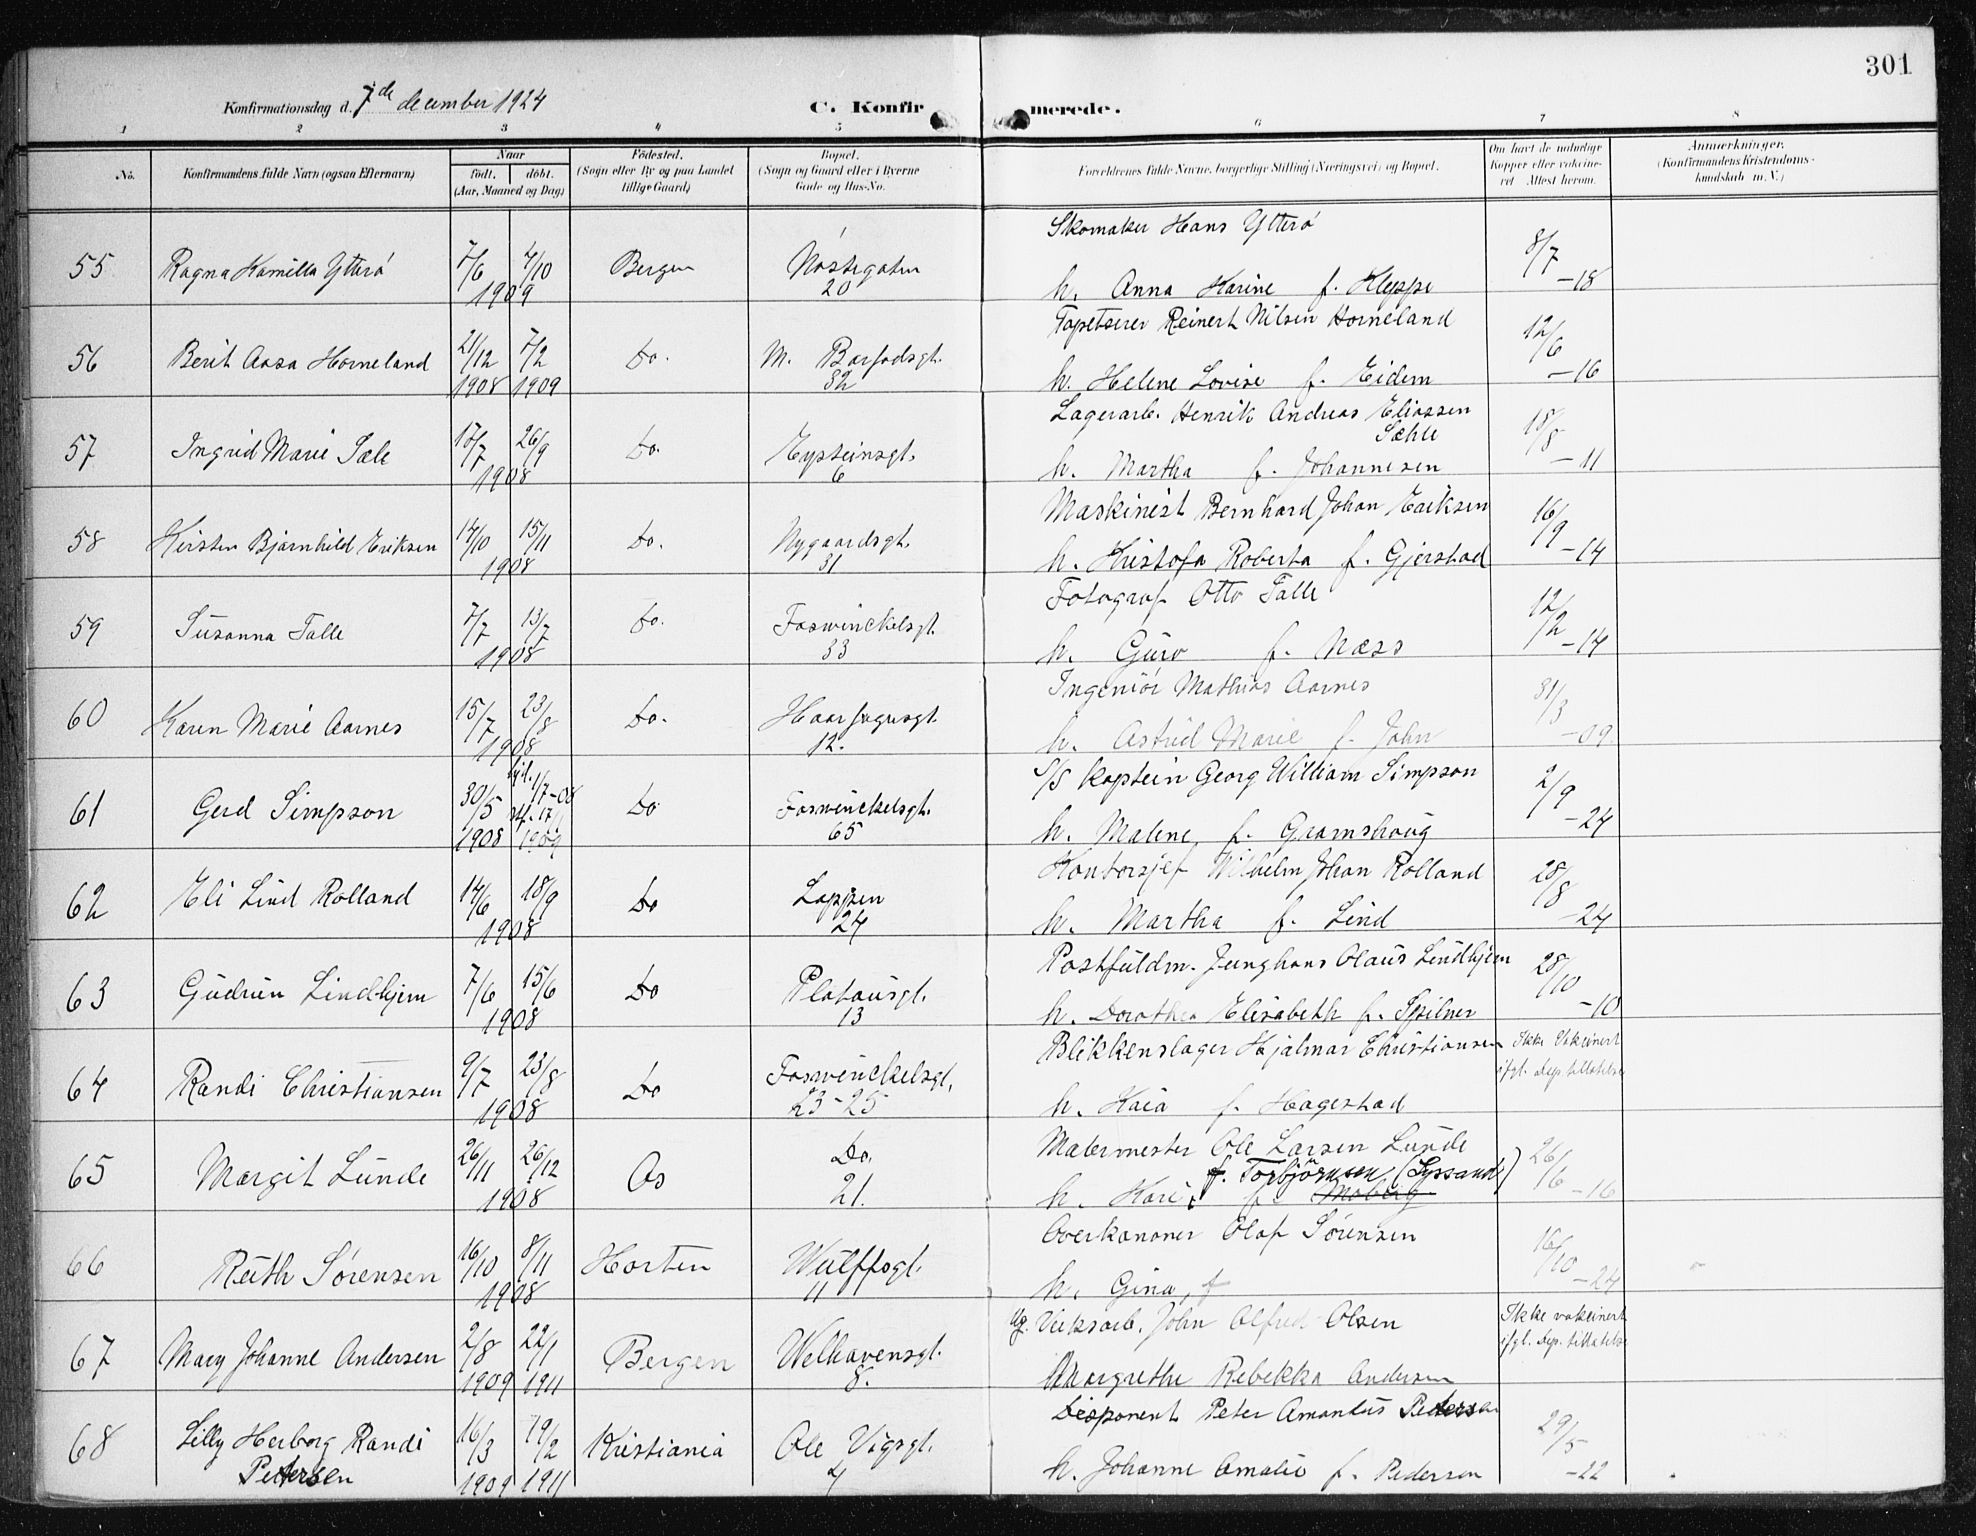 301
Konfirmationsdag d. 7de december 1924 C. Konfirmerede.
1 2 3 4 5 6 7 8
No. Konfirmandens fulde Navn (ogsaa Efternavn) Naar født. døbt. (Aar, Maaned og Dag) Fødested. (Sogn eller By og paa Landet tillige Gaard) Bopæl. (Sogn og Gaard eller i Byerne Gade og Hus-No. Forældrenes fulde Navne, borgerlige Stilling (Næringsvei) og Bopæl. Om havt de naturlige Kopper eller vakcineret Attest herom. Anmærkninger. (Konfirmandens Kristendomskundskab m. V.)
Skomaker Hans Ytterö
55 Ragna Kamilla Ytterö 7/6 4/10 1909 Bergen Nöstegaten 20 8/7 -18
h. Anna Karine f. Kleppe
Tapetserer Reinert Nilsen Horneland
56 Berit Aasa Horneland 21/12 1908 7/2 1909 Do. M. Barfodsgt. 32 12/6 -16
h. Helene Lovise f. Eidem
Lagerarb. Henrik Andreas Eliassen Sæhle
57 Ingrid Marie Sæle 17/7 26/9 1908 Do. Eysteinsgt. 6 18/8 -11
h. Martha f. Johannesen
Maskinist Bernhard Johan Eriksen
58 Kirsten Bjarnhild Eriksen 14/10 15/11 1908 Do. Nygaardsgt. 31 16/9 -14
h. Kristofa Roberta f. Gjerstad
Fotograf Otto Talle
59 Susanna Talle 7/7 13/7 1908 Do. Foswinckelsgt. 33 12/2 -14
h. Guro f. Næss
Ingeniör Mathias Aarnes
60 Karen Marie Aarnes 15/7 23/8 1908 Do. Haarfagresgt. 12. 31/3 -09
h. Astrid Marie f. John
S/S Kaptein Georg William Simpson
61 Gerd Simpson 30/5 1908 hjd. 1/7-08 stf. 17/1 1909 Do Foswinckelsgt. 65 2/9 -24
h. Malene f. Gramshaug
Kontorsjef Wilhelm Johan Rolland
62 Eli Lind Rolland 14/6 18/9 1908 Do Lappen 24 28/8 -24
h. Martha f. Lind
Postfuldm. Junghans Olaus Lindhjem
63 Gudrun Lindhjem 7/6 15/6 1908 Do Platousgt. 13 28/10 -10
h. Dorothea Elisabeth f. Spilner
Blikkenslager Hjalmar Christiansen
64 Randi Christiansen 9/7 23/8 1908 Do Foswinckelsgt. 23-25 Ikke Vakcinert ifgl. dep. tillatelse
h. Kaia f. Hagestad
Malermester Ole Larsen Lunde
65 Margit Lunde 26/11 26/12 1908 Os Do. 21. 26/6 -16
h. Kari, f. Torbjörnsen (Lyssand) f. Moberg
Overkanoner Olaf Sörensen
66 Ruth Sörensen 16/10 8/11 1908 Horten Wulffsgt. 11 16/10 -24
h. Gina, f
Ug. Verksarb. John Alfred Olsen
67 Mary Johanne Andersen 2/8 1909 22/1 1911 Bergen Welhavensgt. 8. Ikke vakcinert ifgl. Dep. tillatelse
Margrethe Rebekka Andersen
Disponent Peter Amandus Petersen
68 Lilly Herborg Randi Petersen 16/3 1909 19/2 1911 Kristiania Ole Vigsgt. 4 29/5 -22
h. Johanne Amalie f. Pedersen